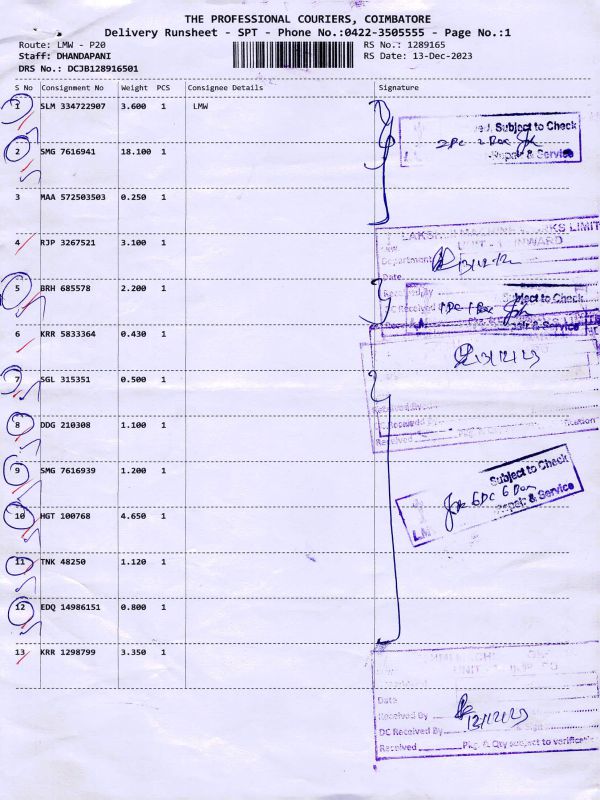 THE PROFESSIONAL COURIERS, COIMBATORE
Delivery Runsheet - SPT - Phone No.:0422-3505555 - Page No.:1
Route: LMW - P20
RS No.: 1289165
Staff: DHANDAPANI
RS Date: 13-Dec-2023
DRS No.: DCJB128916501
S No Consignment No Weight PCS Consignee Details Signature
1 SLM 334722907 3.600 1 LMW
Subject to Check
Repair & Service
2 SMG 7616941 18.100 1
3 MAA 572503503 0.250 1
4 RJP 3267521 3.100 1
INWARD
Department
Date
5 BRH 685578 2.200 1
Received By
Subject to Check
DC Received
Repair & Service
6 KRR 5833364 0.430 1
13/12/23
7 SGL 315351 0.500 1
Received By
8 DDG 210308 1.100 1
DC Received By
Received
9 SMG 7616939 1.200 1
Subject to Check
6 DC 6 Box
Repair & Service
10 HGT 100768 4.650 1
11 TNK 48250 1.120 1
12 EDQ 14986151 0.800 1
13 KRR 1298799 3.350 1
Date
Received By
DC Received By
Received Pkg. & Qty subject to verification